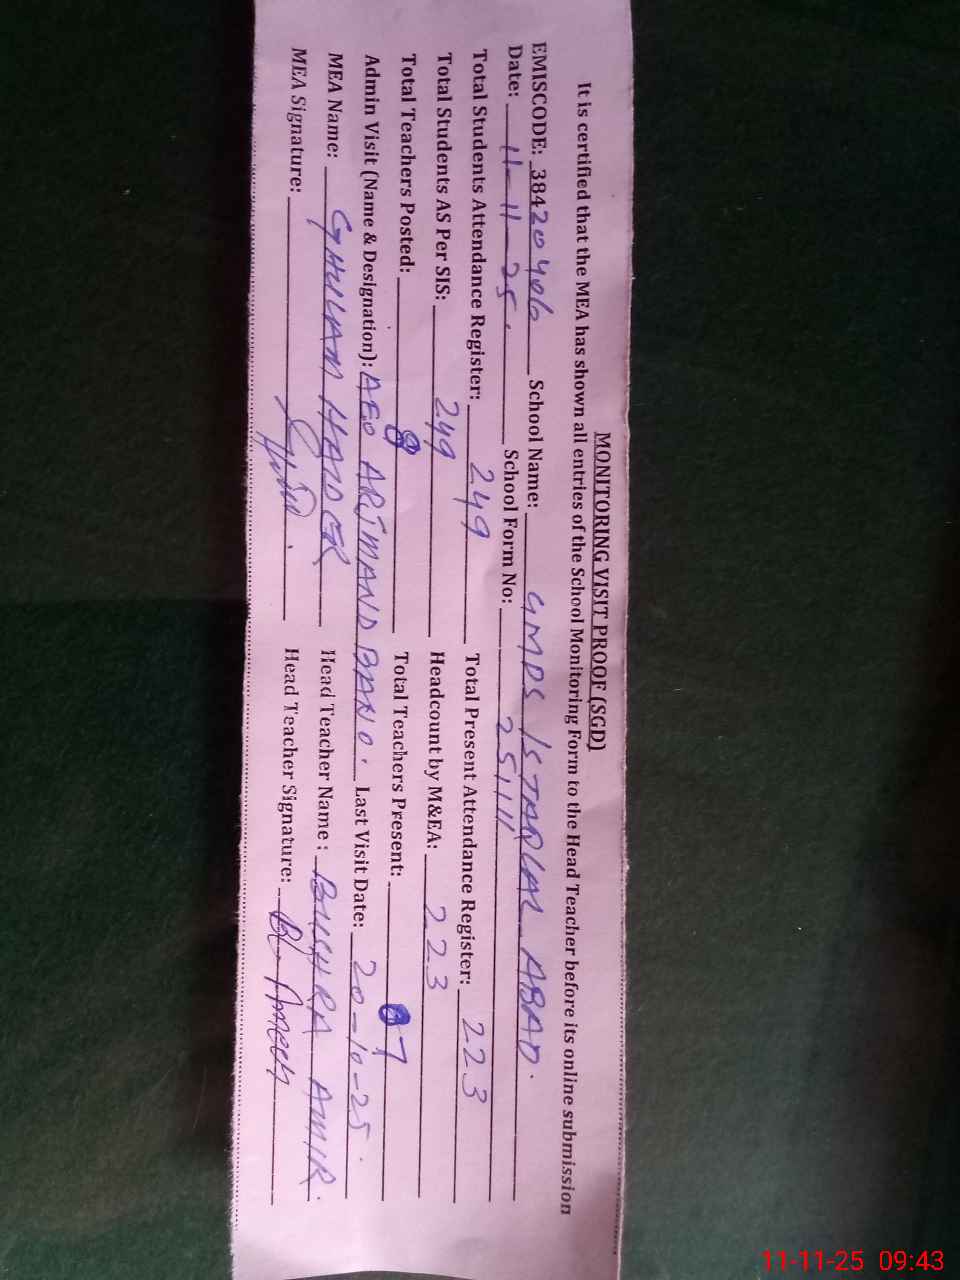 MONITORING VISIT PROOF (SGD)
It is certified that the MEA has shown all entries of the School Monitoring Form to the Head Teacher before its online submission
EMISCODE: 38420406 School Name: GMPS ISTAQLAL ABAD.
Date: 11-11-25. School Form No: 25111
Total Students Attendance Register: 249 Total Present Attendance Register: 223
Total Students AS Per SIS: 249 Headcount by M&EA: 223
Total Teachers Posted: 8 Total Teachers Present: 7
Admin Visit (Name & Designation): AEO ARJMAND BANO. Last Visit Date: 20-10-25.
MEA Name: GHULAM HAIDER Head Teacher Name : BUSHRA AMIR.
MEA Signature: Head Teacher Signature:
11-11-25 09:43